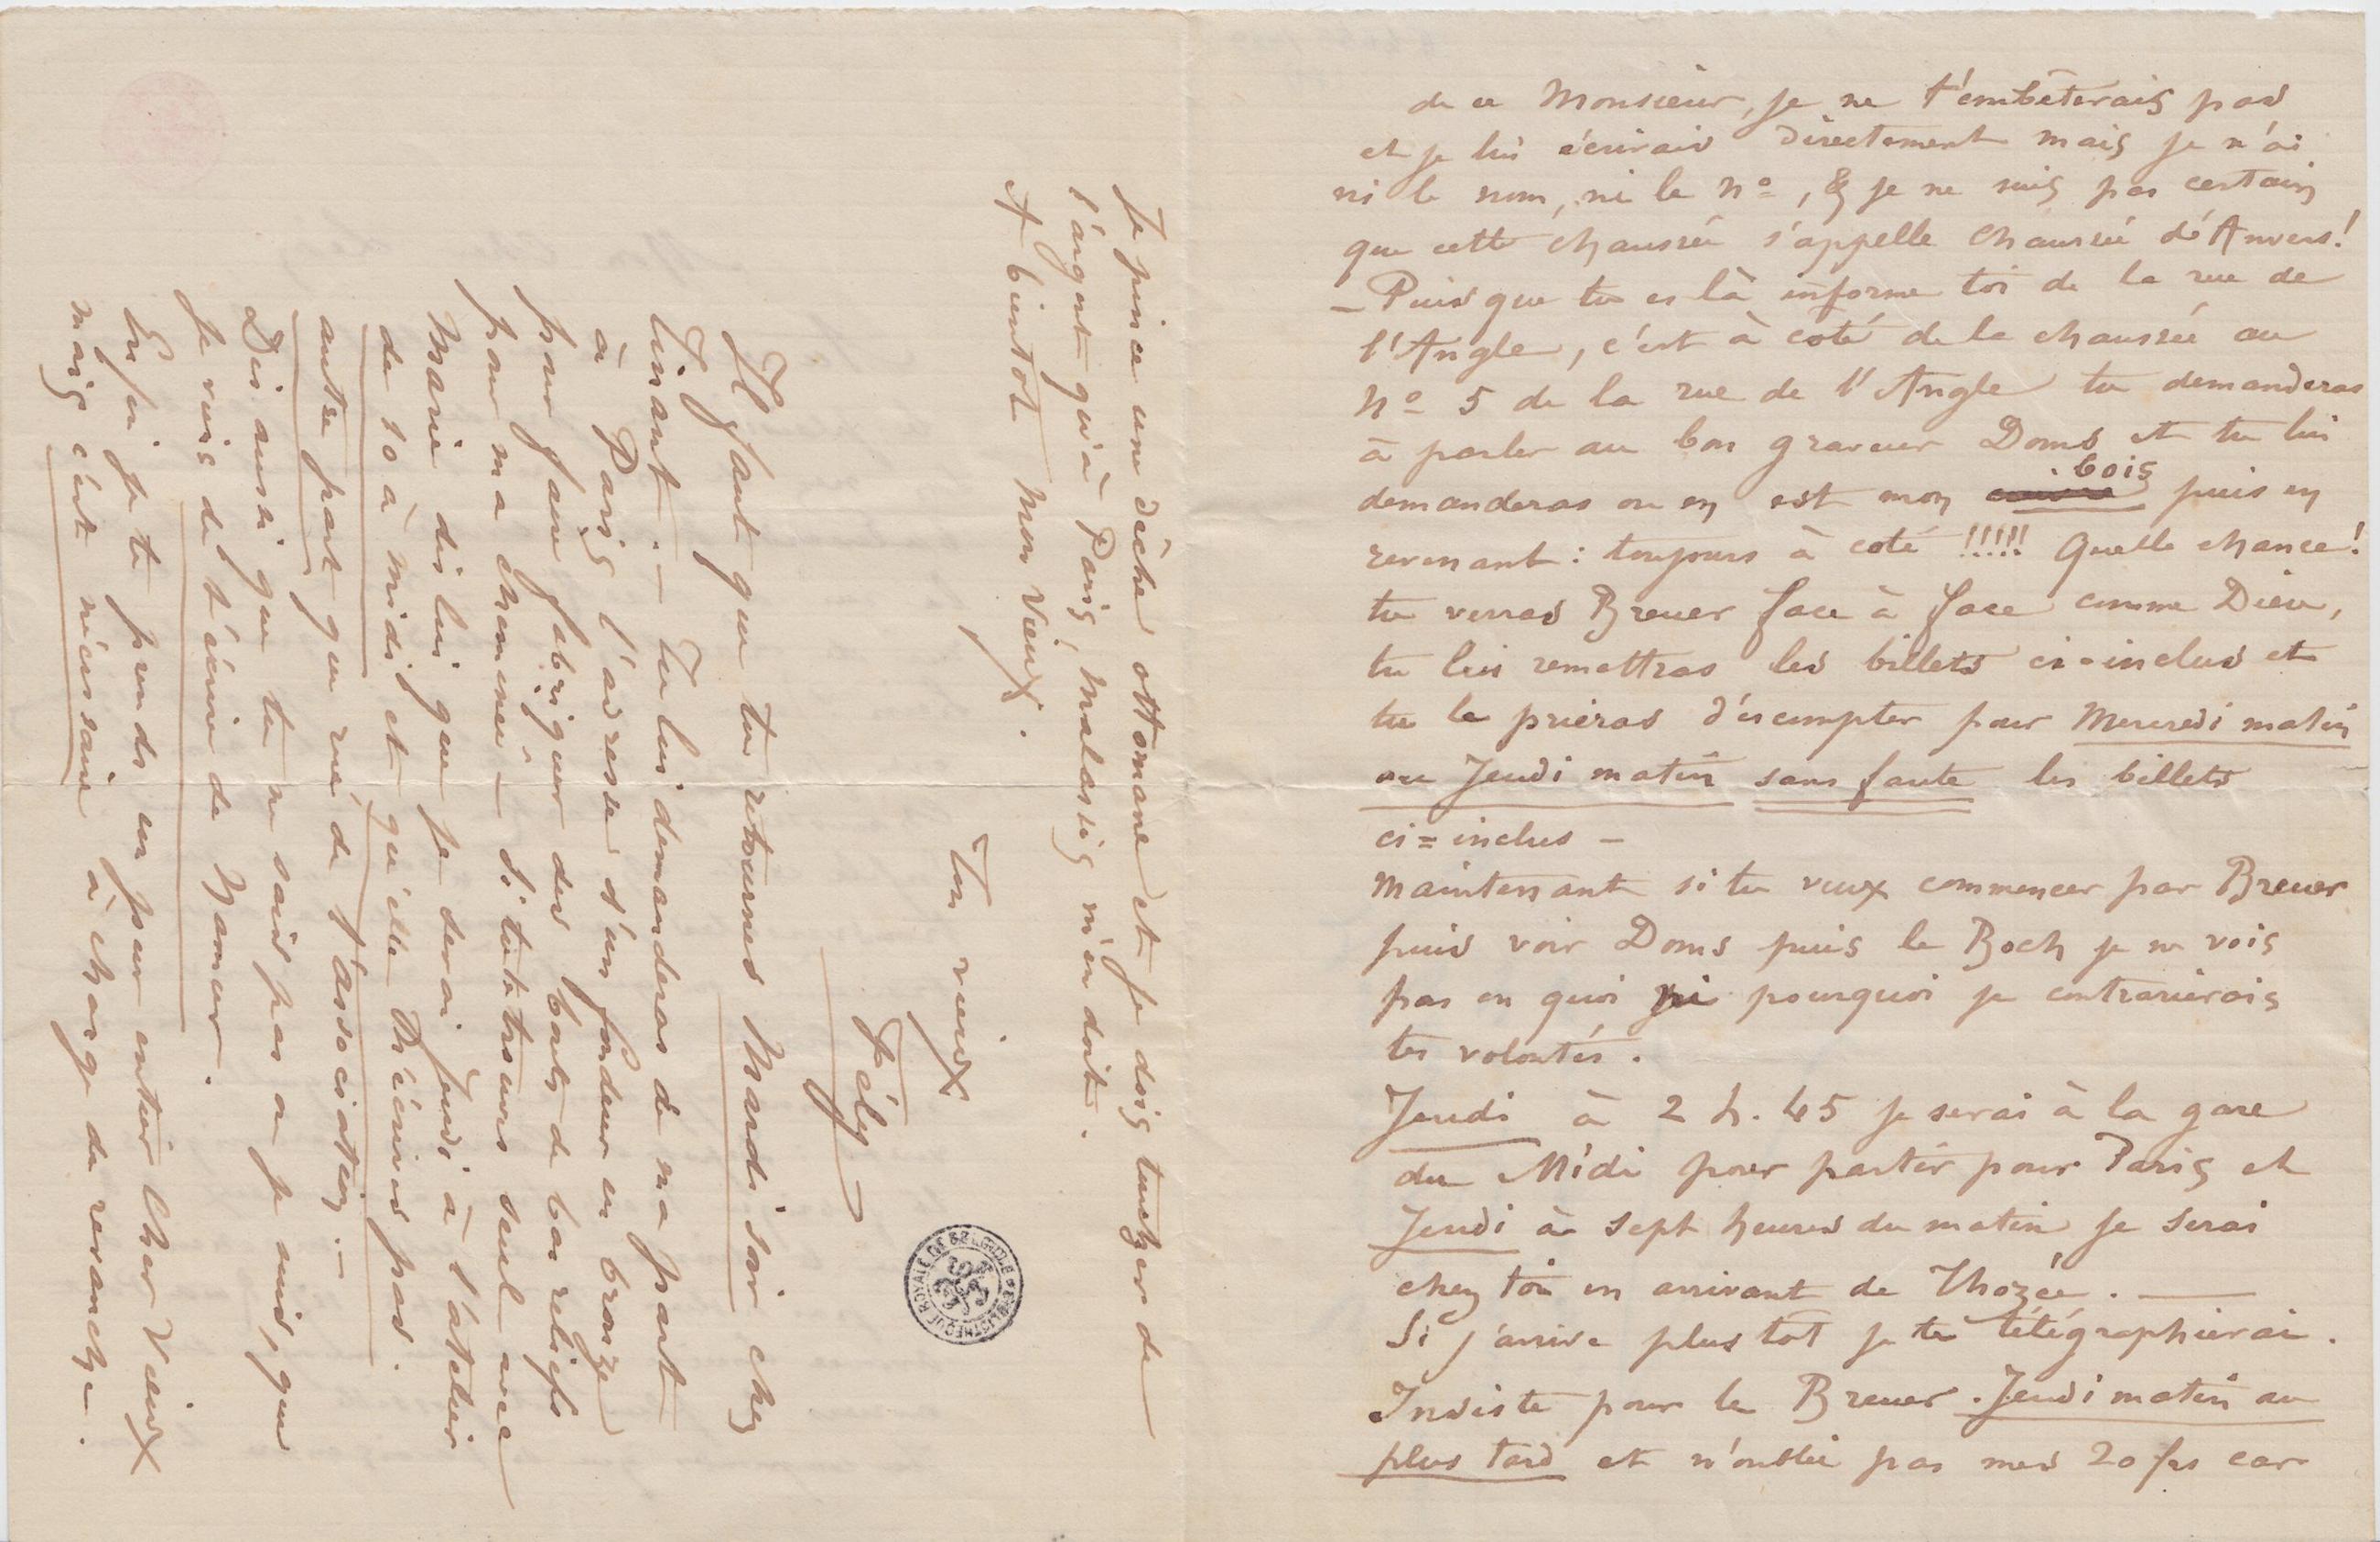 de ce Monsieur, je ne t'embêterais pas
et je lui écrirais directement mais je n'ai
ni le nom, ni le nº, & je ne suis pas certain
que cette chaussée s'appelle chaussée d'Anvers!
– Puisque tu es là informe toi de la rue de
l'Angle, c'est à coté de la chaussée au
nº 5 de la rue de l'Angle tu demanderas
à parler au bon graveur Doms et tu lui
demanderas ou en est mon bois puis en
revenant: toujours à coté !!!!! Quelle chance!
tu verras Breuer face à face comme Dieu,
tu lui remettras les billets ci-inclus et
tu le prieras d'escompter pour Mercredi matin
ou Jeudi matin sans faute les billets
ci=inclus –
Maintenant si tu veux commencer par Breuer
puis voir Doms puis le Boch je ne vois
pas en quoi ni pourquoi je contrarierais
tes volontés.
Jeudi à 2 h. 45 je serai à la gare
du Midi pour partir pour Paris et
Jeudi à sept heures du matin je serai
chez toi en arrivant de Thozée. —
Si j'arrive plus tot je te télégraphierai.
Insiste pour le Breuer. Jeudi matin au
plus tard et n'oublie pas mes 20 frs car
Je pince une dêche ottomane et je dois toucher de
l'argent qu'à Paris, Malassis m'en doit.
A bientot mon Vieux.
Ton vieux
Fély
Il faut que tu retournes Mardi soir chez
Tinant. – Tu lui demanderas de ma part
à Paris l'adresse d'un fondeur en bronze
pour faire fabriquer des bouts de bas reliefs
pour ma cheminée – Si tu te trouves seul avec
Marie dis lui que je serai Jeudi à l'atelier
de 10 à midi et qu'elle n'écrive pas.
autre part que rue de l'association. –
Dis aussi que tu ne sais pas ou je suis, que
je viens de t'écrire de Namur.
Enfin je te prends un jour entier cher Vieux
mais c'est nécessaire à charge de revanche.
BIBLIOTHEQUE ROYALE DE BELGIQUE